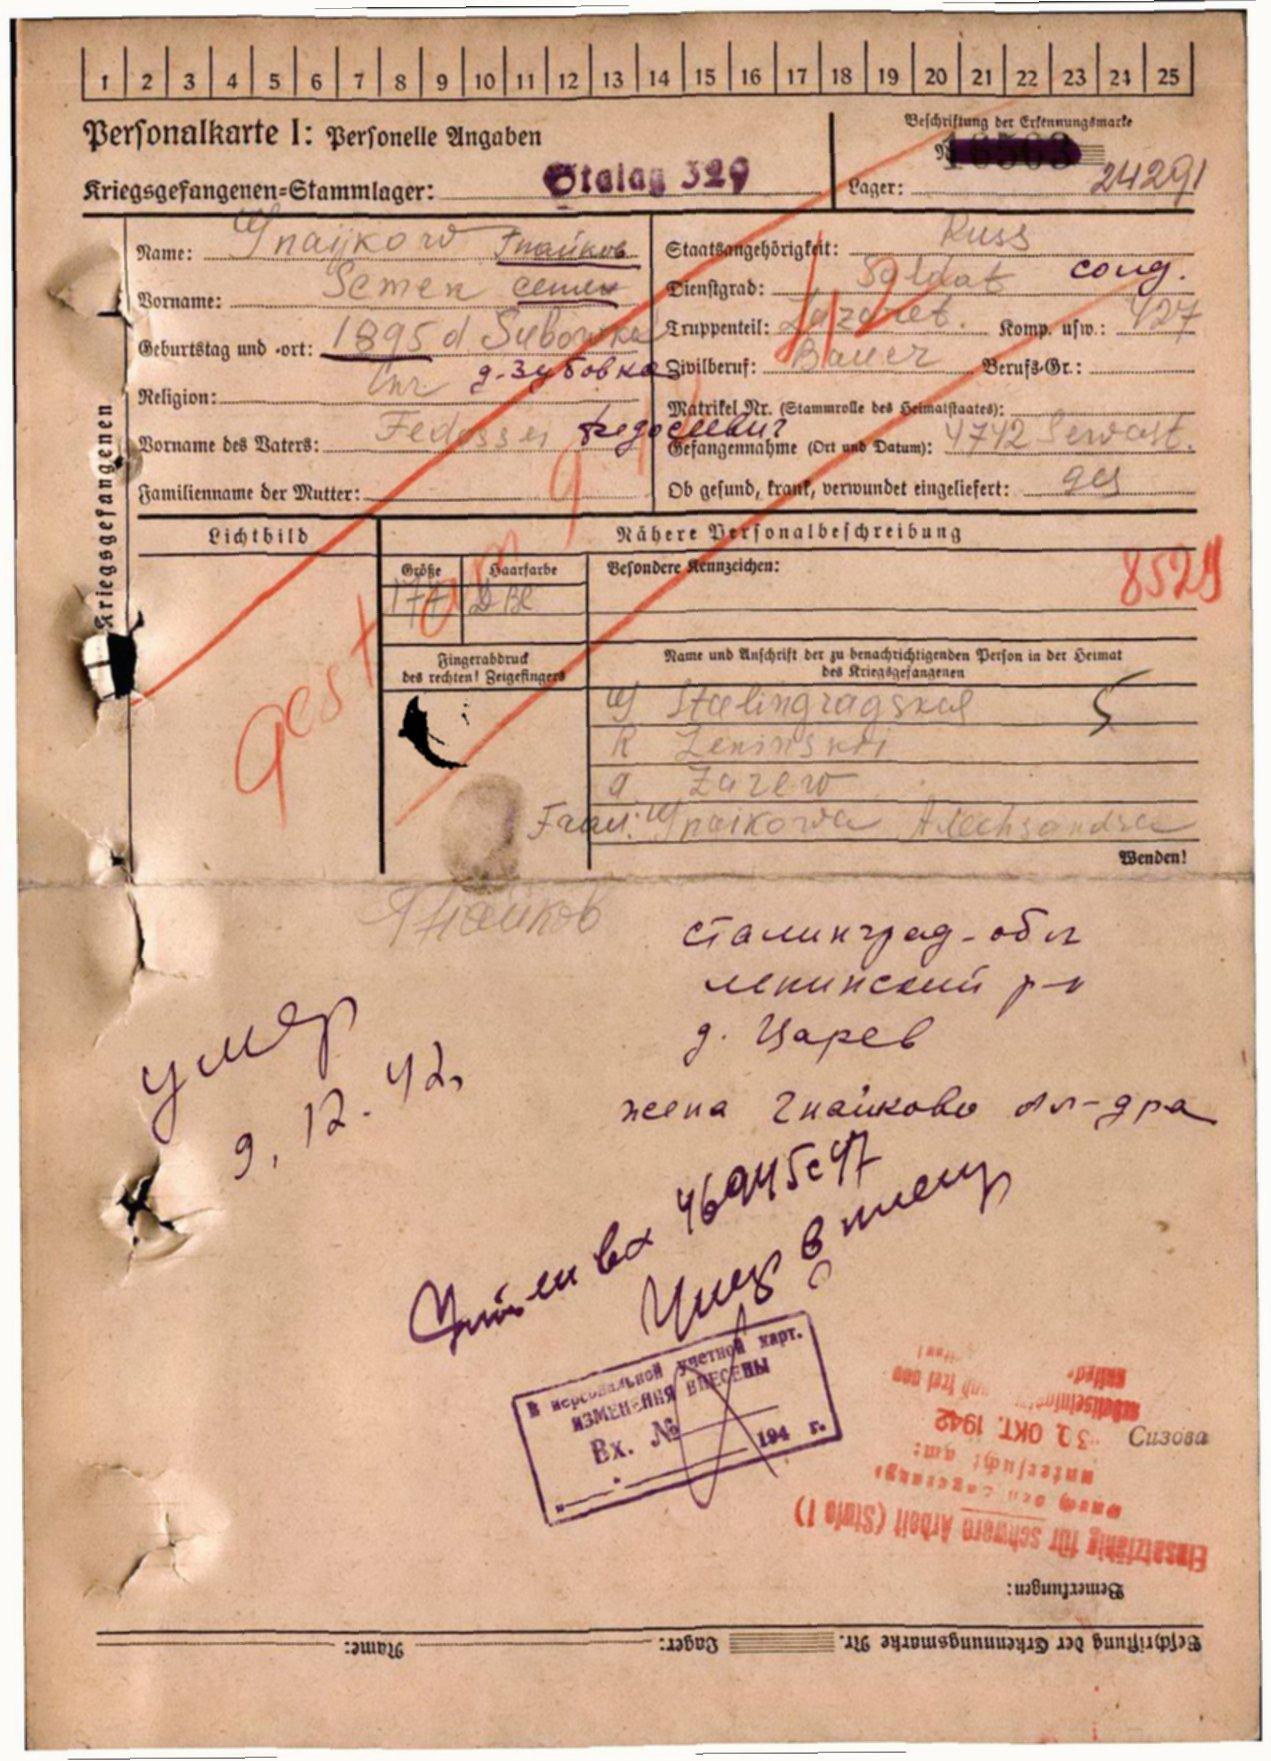 1 2 3 4 5 6 7 8 9 10 11 12 13 14 15 16 17 18 19 20 21 22 23 24 25
Personalkarte I: Personelle Angaben
Beschriftung der Erkennungsmarke
Kriegsgefangenen-Stammlager: Stalag 329
Lager: 24291
Name: Гнайков
Vorname: Semen семен
Geburtstag und -ort: 1895 d Subowka
д. Зубовка
Religion:
Vorname des Vaters: Fedossei Федосеевич
Familienname der Mutter:
Staatsangehörigkeit: Russ
Dienstgrad: Soldat солд.
Truppenteil: Lazaret. Komp. usw.: 427
Zivilberuf: Bauer Berufs-Gr.:
Matrikel Nr. (Stammrolle des Heimatstaates):
Gefangennahme (Ort und Datum): 4742 Sewast.
Ob gesund, krank, verwundet eingeliefert: ges
Kriegsgefangenen
Lichtbild
Nähere Personalbeschreibung
Größe Haarfarbe
177 D Bl
Besondere Kennzeichen:
8529
gest am 9.12
Fingerabdruck
des rechten! Zeigefingers
Name und Anschrift der zu benachrichtigenden Person in der Heimat
des Kriegsgefangenen
Stalingragskal
R Leninskri
d Zarew
5
Frau: Gnaikowa Alechsandra
Wenden!
Гнайков
Сталинград-обл
Ленинский р-н
д. Царев
жена Гнайкова Ал-дра
умер
9.12.42г
вх 46945с47
Умер в плену
В персональной учетной карт.
ИЗМЕНЕНИЯ ВНЕСЕНЫ
Вх. №
194 г.
Сизова
30 OKT. 1942
untersucht am:
Einsatzfähig für schwere Arbeit (Stufe I)
Bemerkungen:
Beschriftung der Erkennungsmarke Nr. Lager: Name: